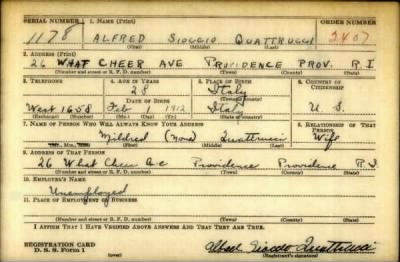 SERIAL NUMBER 1. NAME (Print) ORDER NUMBER
1178 ALFRED QUATTRUCCI 2407
(First) (Middle) (Last)
2. ADDRESS (Print)
26 WHAT CHEER AVE PROVIDENCE PROV. R.I.
(Number and street or R. F. D. number) (Town) (County) (State)
3. TELEPHONE 4. AGE IN YEARS 5. PLACE OF BIRTH 6. COUNTRY OF CITIZENSHIP
28 Italy
DATE OF BIRTH
West 1658 Feb 1 1912 Italy U. S.
(Exchange) (Number) (Mo.) (Day) (Yr.) (State or country)
7. NAME OF PERSON WHO WILL ALWAYS KNOW YOUR ADDRESS 8. RELATIONSHIP OF THAT PERSON
Mildred (none) Quattrucci Wife
(First) (Middle) (Last)
9. ADDRESS OF THAT PERSON
26 What Cheer Ave Providence Providence R.I
(Number and street or R. F. D. number) (Town) (County) (State)
10. EMPLOYER'S NAME
Unemployed
11. PLACE OF EMPLOYMENT OR BUSINESS
(Number and street or R. F. D. number) (Town) (County) (State)
I AFFIRM THAT I HAVE VERIFIED ABOVE ANSWERS AND THAT THEY ARE TRUE.
REGISTRATION CARD
D. S. S. Form 1
Quattrucci
(Registrant's signature)